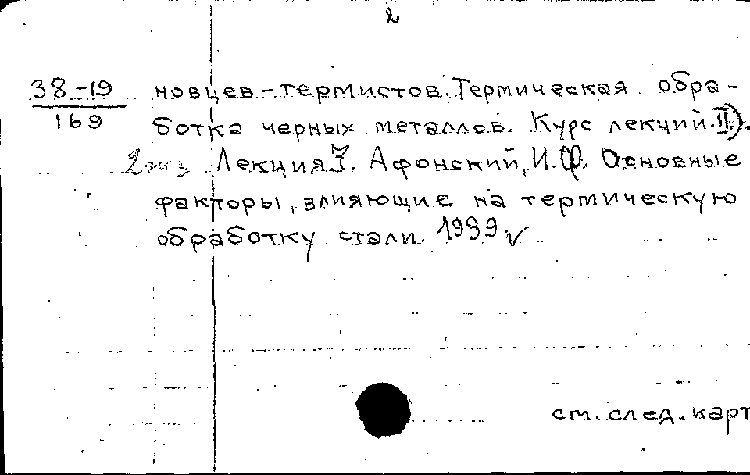 2
38-19 новцев-термистов. Термическая обра-
169 ботка черных металлов. Курс лекций. II).
2 экз Лекция I. Афонский, И.Ф. Основные
факторы, влияющие на термическую
обработку стали 1939 v
см. след. карт